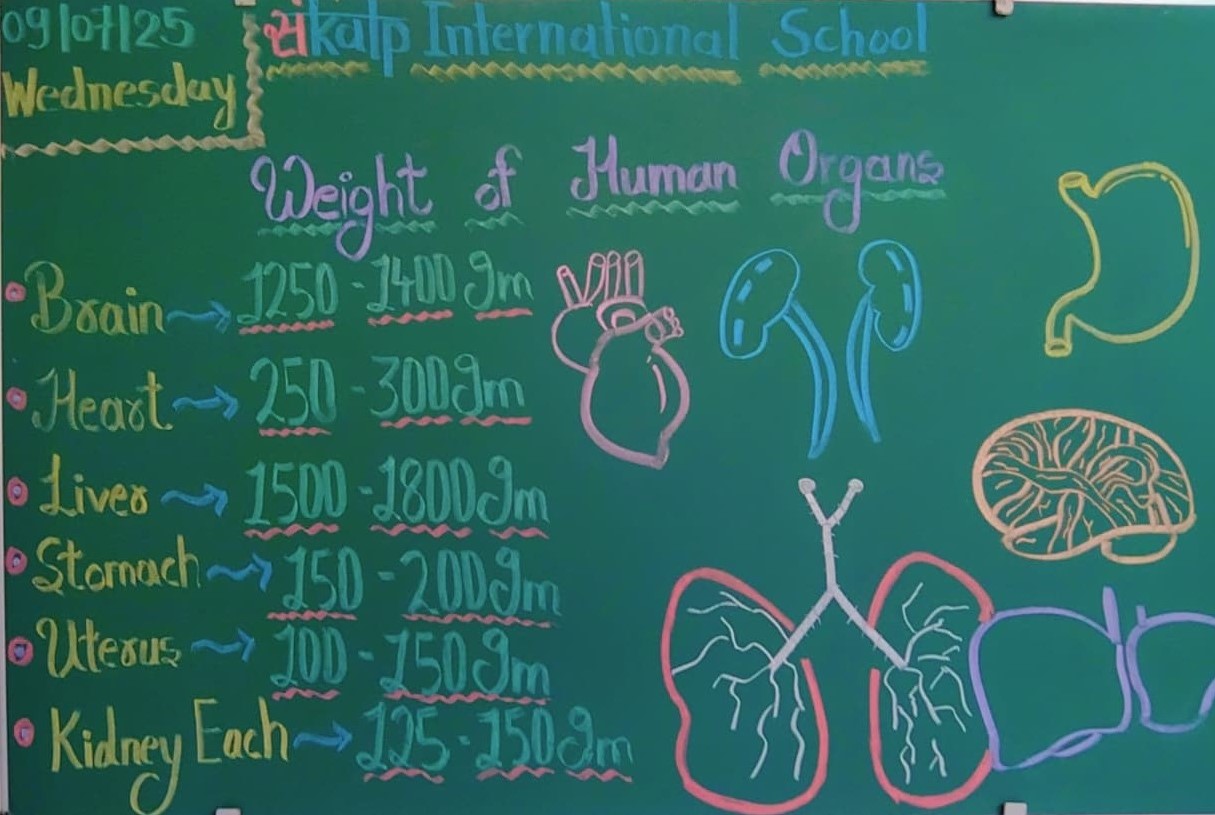 09/07/25
Wednesday
संkalp International School
Weight of Human Organs
Brain → 1250 - 1400 gm
Heart → 250 - 300 gm
Liver → 1500 - 1800 gm
Stomach → 150 - 200 gm
Uterus → 100 - 150 gm
Kidney Each → 125 - 150 gm